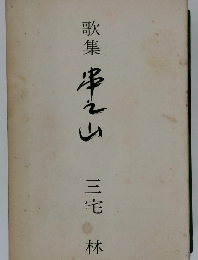 歌集
串之山
三宅 林